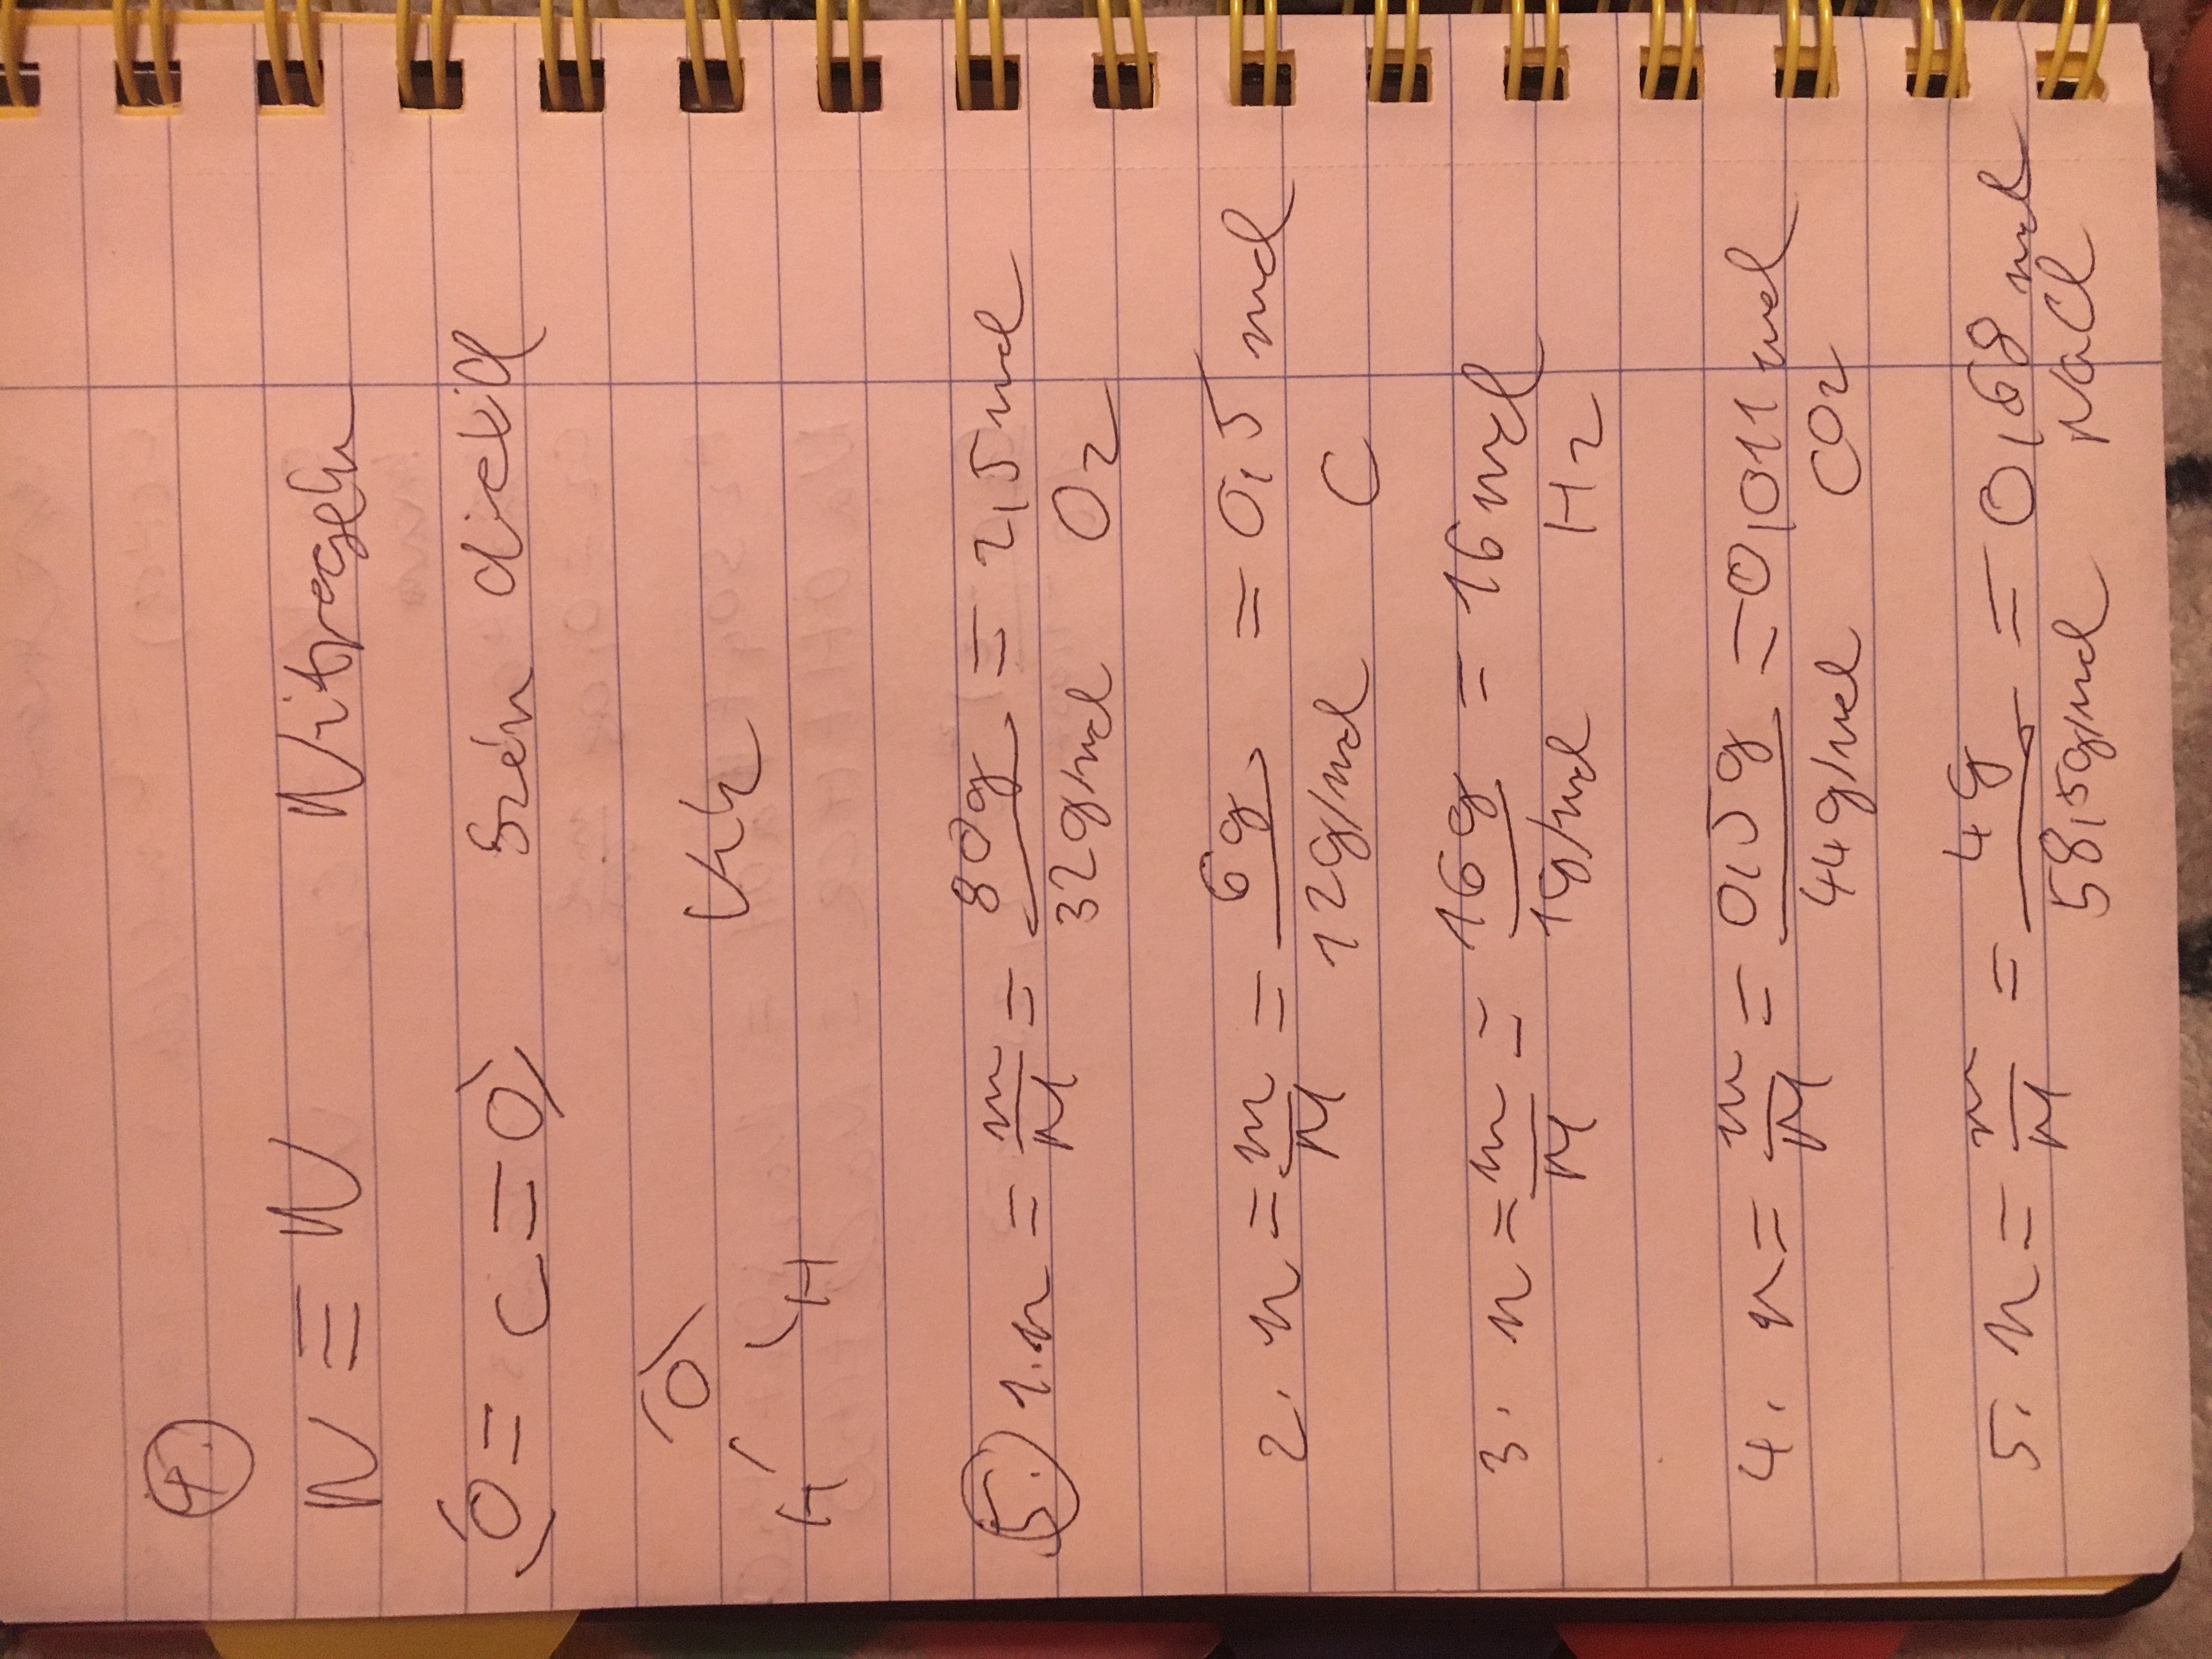 4.
N ≡ N Nitrogén
O = C = O Szén dioxid
O Víz
H H
5. 1. n = m/M = 80g/32g/mol = 2,5 mol O2
2. n = m/M = 6g/12g/mol = 0,5 mol C
3. n = m/M = 16g/1g/mol = 16 mol H2
4. n = m/M = 0,5g/44g/mol = 0,011 mol CO2
5. n = m/M = 4g/58,5g/mol = 0,68 mol NaCl